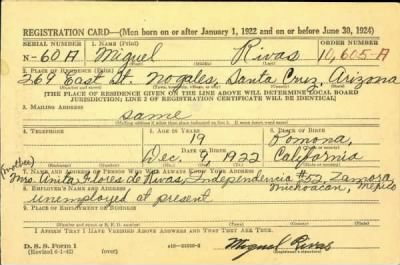 REGISTRATION CARD—(Men born on or after January 1, 1922 and on or before June 30, 1924)
SERIAL NUMBER 1. NAME (Print) ORDER NUMBER
N-60A Miguel Rivas 10,605-A
2. PLACE OF RESIDENCE (Print)
269 East St. Nogales, Santa Cruz, Arizona
[THE PLACE OF RESIDENCE GIVEN ON THE LINE ABOVE WILL DETERMINE LOCAL BOARD
JURISDICTION; LINE 2 OF REGISTRATION CERTIFICATE WILL BE IDENTICAL]
3. MAILING ADDRESS
Same
4. TELEPHONE 5. AGE IN YEARS 6. PLACE OF BIRTH
19 Pomona,
DATE OF BIRTH
Dec. 9, 1922 California
7. NAME AND ADDRESS OF PERSON WHO WILL ALWAYS KNOW YOUR ADDRESS
(mother) Mrs. Anita Flores de Rivas, Independencia #52, Zamora,
Michoacan, Mexico
8. EMPLOYER'S NAME AND ADDRESS
unemployed at present
9. PLACE OF EMPLOYMENT OR BUSINESS
I AFFIRM THAT I HAVE VERIFIED ABOVE ANSWERS AND THAT THEY ARE TRUE.
D. S. S. Form 1
(Revised 6-1-42) (over)
Miguel Rivas